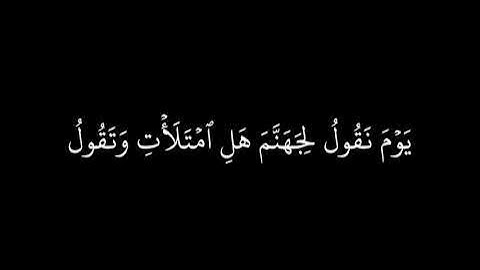 يَوْمَ نَقُولُ لِجَهَنَّمَ هَلِ ٱمْتَلَأْتِ وَتَقُولُ